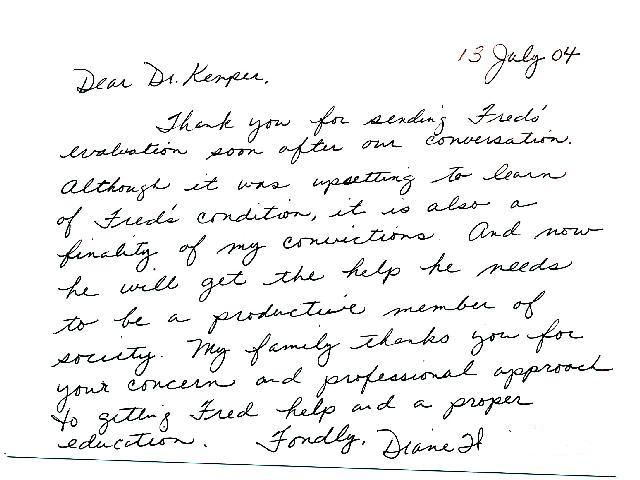 13 July 04
Dear Dr. Kemper,
Thank you for sending Fred's
evaluation soon after our conversation.
Although it was upsetting to learn
of Fred's condition, it is also a
finality of my convictions. And now
he will get the help he needs
to be a productive member of
society. My family thanks you for
your concern and professional approach
to getting Fred help and a proper
education. Fondly, Diane H